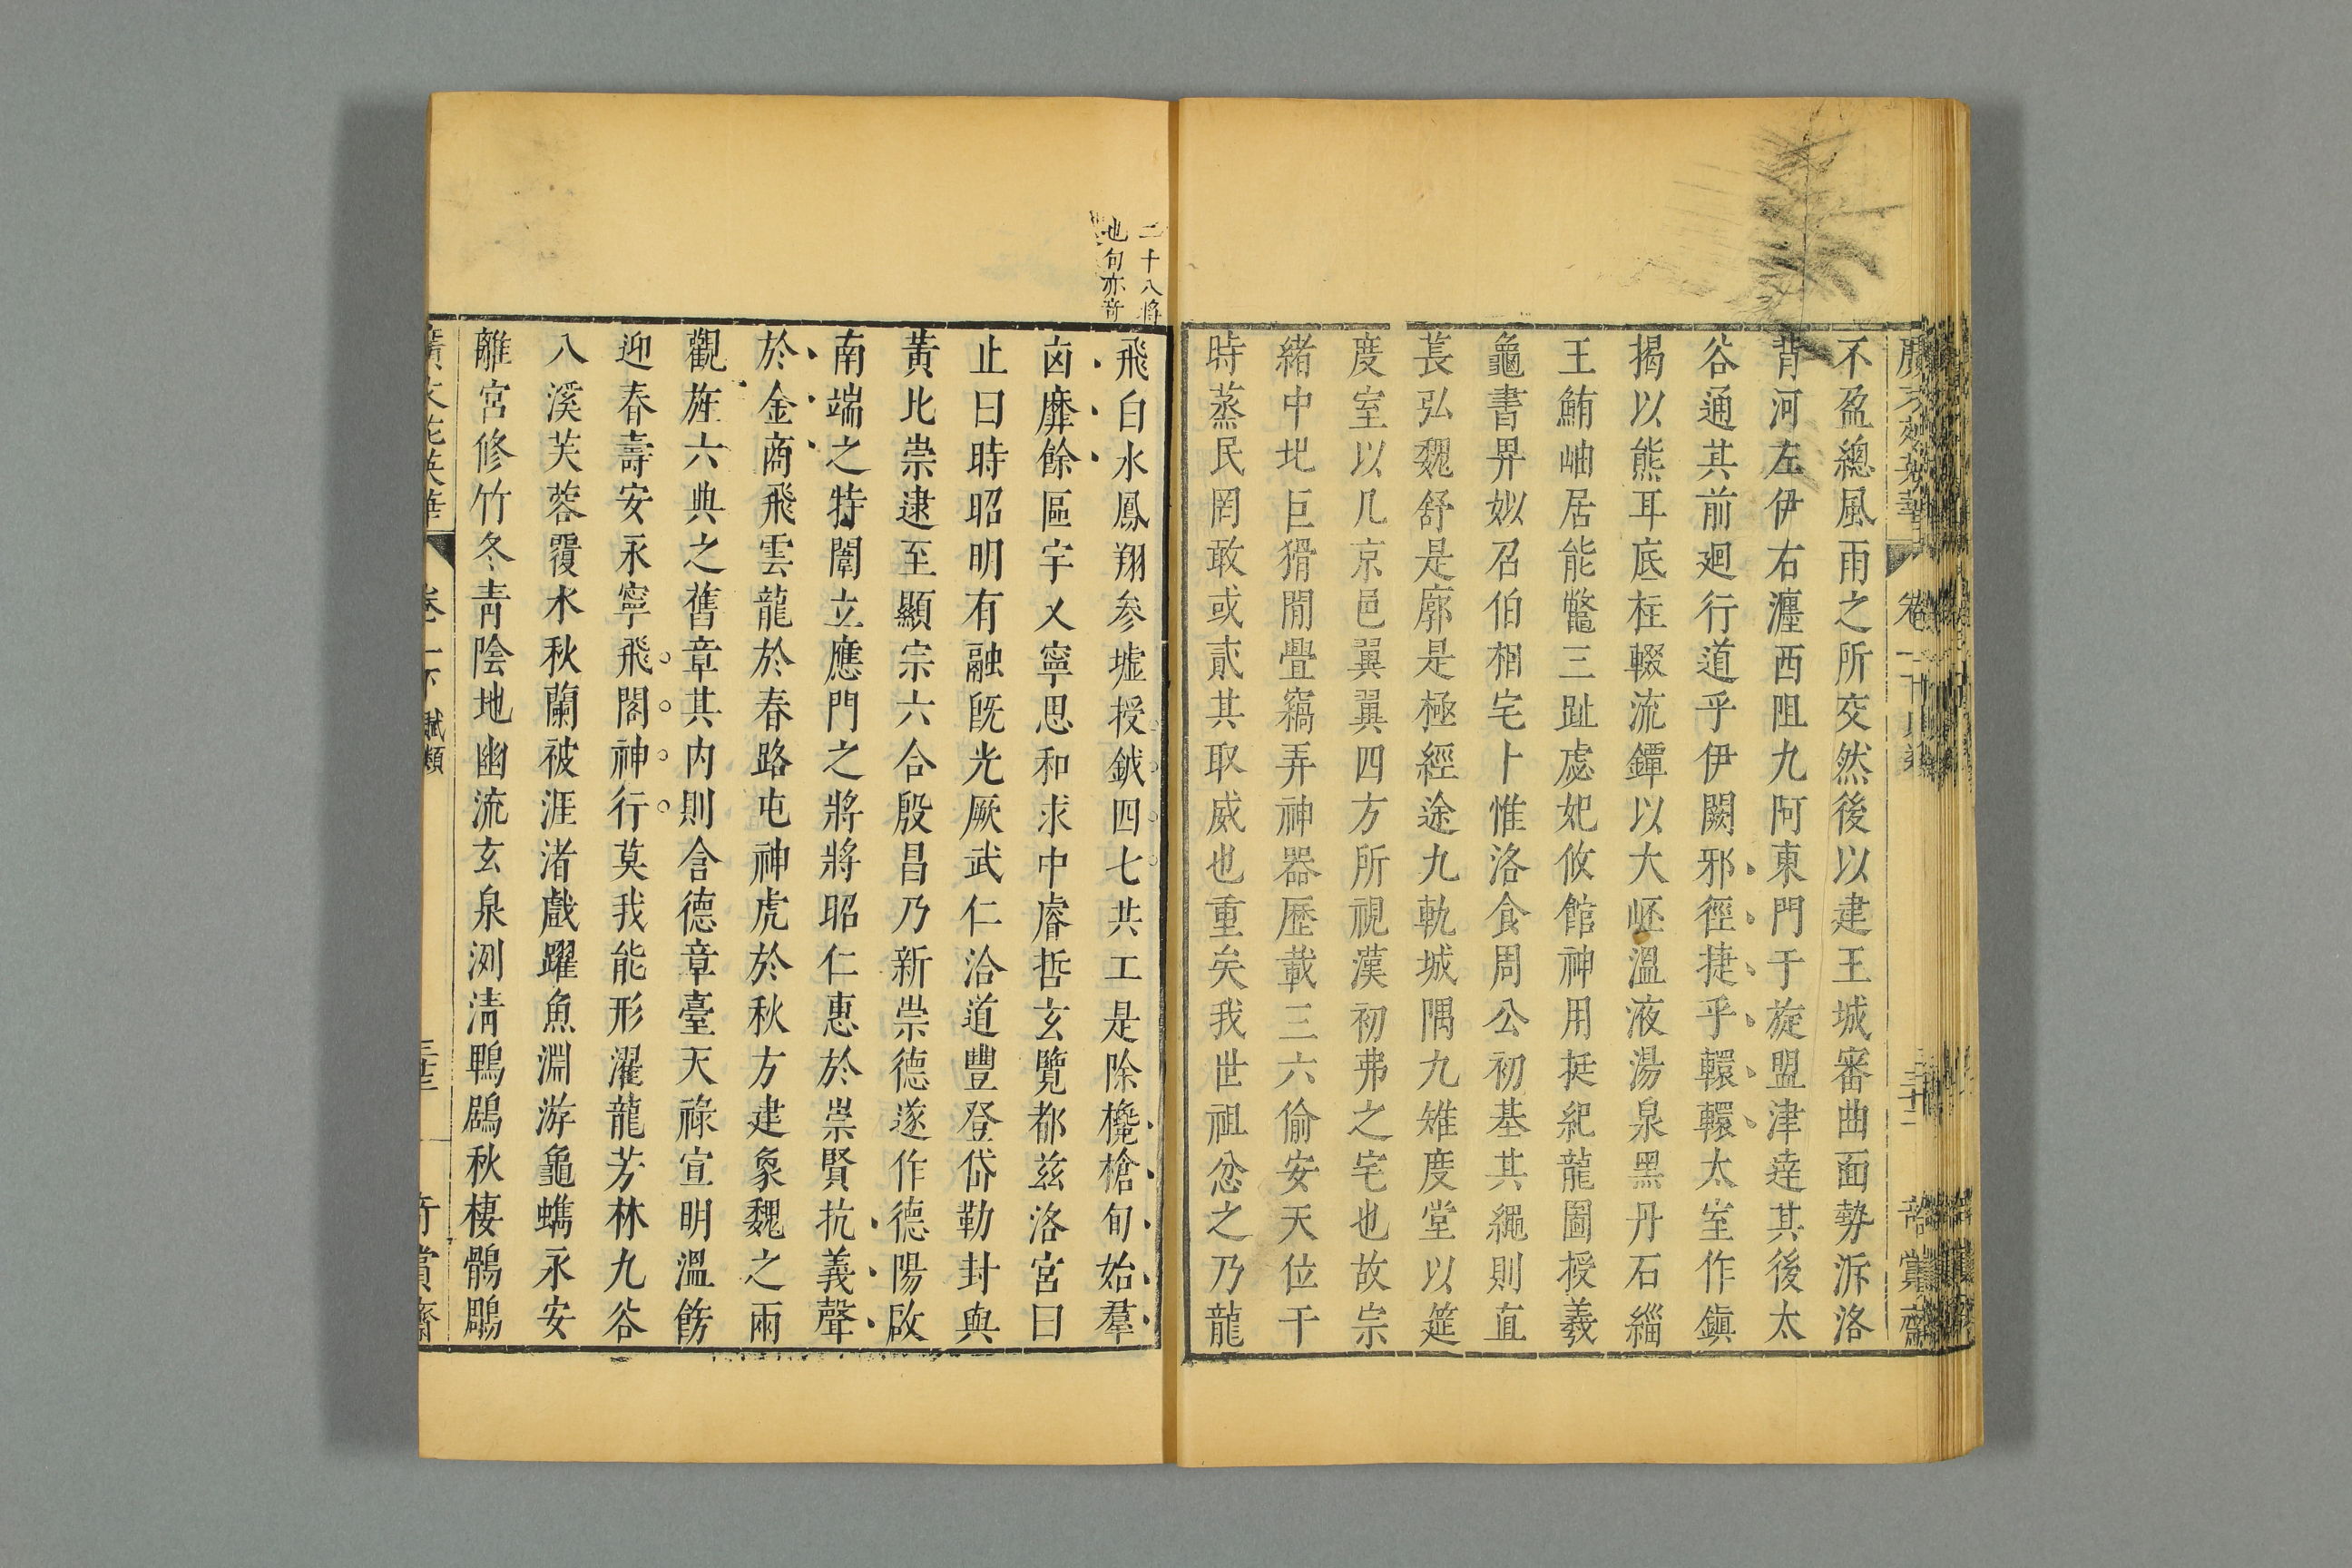 不盈總風雨之所交然後以建王城審曲面勢泝洛
背河左伊右瀍西阻九阿東門于旋盟津逹其後太
谷通其前廻行道乎伊闕邪徑捷乎轘轅太室作鎭
揭以熊耳底柱輟流鐔以大岯溫液湯泉黑丹石緇
王鮪岫居能鼈三趾處妃攸館神用挺紀龍圖授羲
龜書畀姒召伯相宅卜惟洛食周公初基其繩則直
萇弘魏舒是廓是極經途九軌城隅九雉度堂以筵
度室以几京邑翼翼四方所視漢初弗之宅也故宗
緒中圯巨猾閒舋竊弄神器歷載三六偷安天位于
時蒸民罔敢或貳其取威也重矣我世祖忿之乃龍
二十八將
也句亦奇
飛白水鳳翔参墟授鉞四七共工是除欃槍旬始羣
凶靡餘區宇乂寧思和求中睿哲玄覽都兹洛宮曰
止曰時昭明有融旣光厥武仁洽道豐登岱勒封與
黃比崇逮至顯宗六合殷昌乃新崇德遂作德陽啟
南端之特闈立應門之將將昭仁惠於崇賢抗義聲
於金商飛雲龍於春路屯神虎於秋方建象魏之兩
觀旌六典之舊章其内則含德章臺天祿宣明溫飭
迎春壽安永寧飛閣神行莫我能形濯龍芳林九谷
八溪芙蓉覆水秋蘭被涯渚戲躍魚淵游龜蠵永安
離宮修竹冬靑陰地幽流玄泉洌淸鵯鶋秋棲鶻鵰